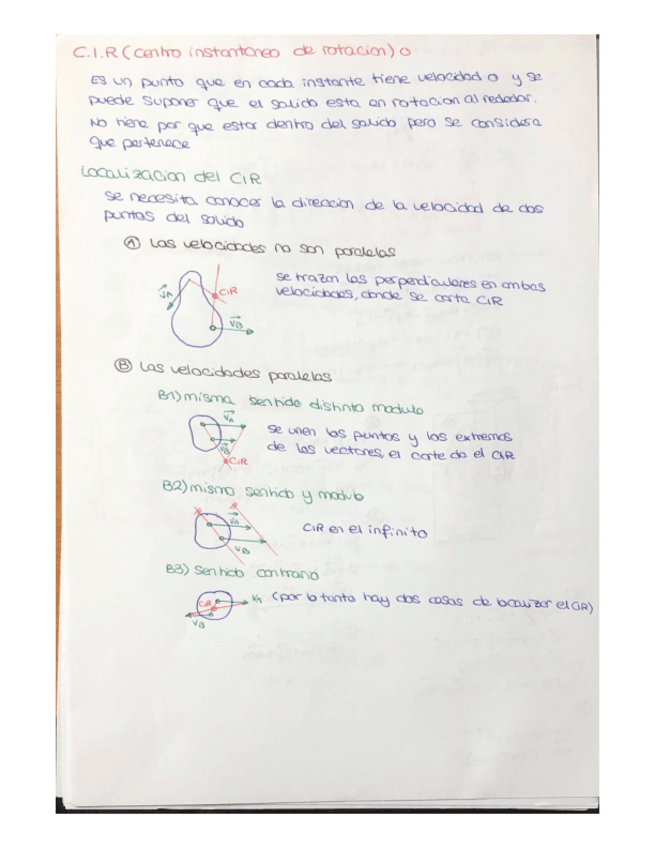 C.I.R (centro instantaneo de rotacion) o
Es un punto que en cada instante tiene velocidad o y se
puede suponer que el solido esta en rotacion alrededor.
No tiene por que estar dentro del solido pero se considera
que pertenece
Localizacion del CIR
Se necesita conocer la direccion de la velocidad de dos
puntos del solido
A Las velocidades no son paralelas
Se trazan las perpendiculares en ambas
velocidades, donde se corta CIR
VA
CIR
VB
B Las velocidades paralelas
B1) misma sentido distinto modulo
VA
VB
CIR
Se unen los puntos y los extremos
de los vectores, el corte da el CIR
B2) mismo sentido y modulo
VA
VB
CIR en el infinito
B3) Sentido contrario
CIR
VA
VB
(por lo tanto hay dos casos de localizar el CIR)